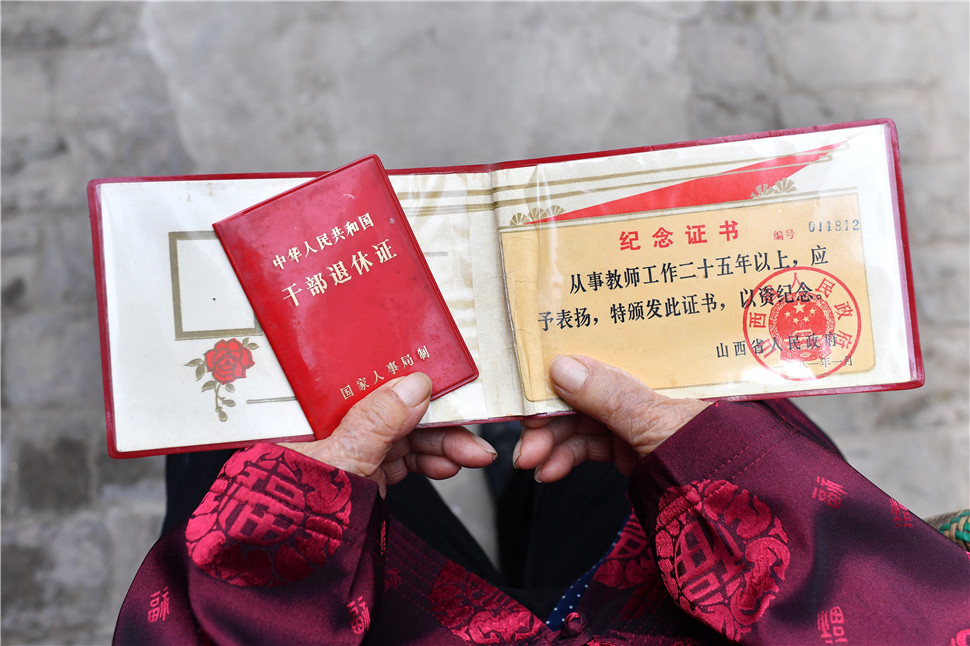 中华人民共和国
干部退休证
国家人事局制
纪念证书 编号 011812
从事教师工作二十五年以上，应
予表扬，特颁发此证书，以资纪念。
山西省人民政府
年一月
西 人民政府
福
福